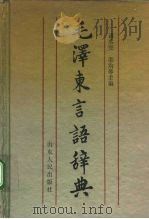 毛澤東言語辞典
山東人民出版社